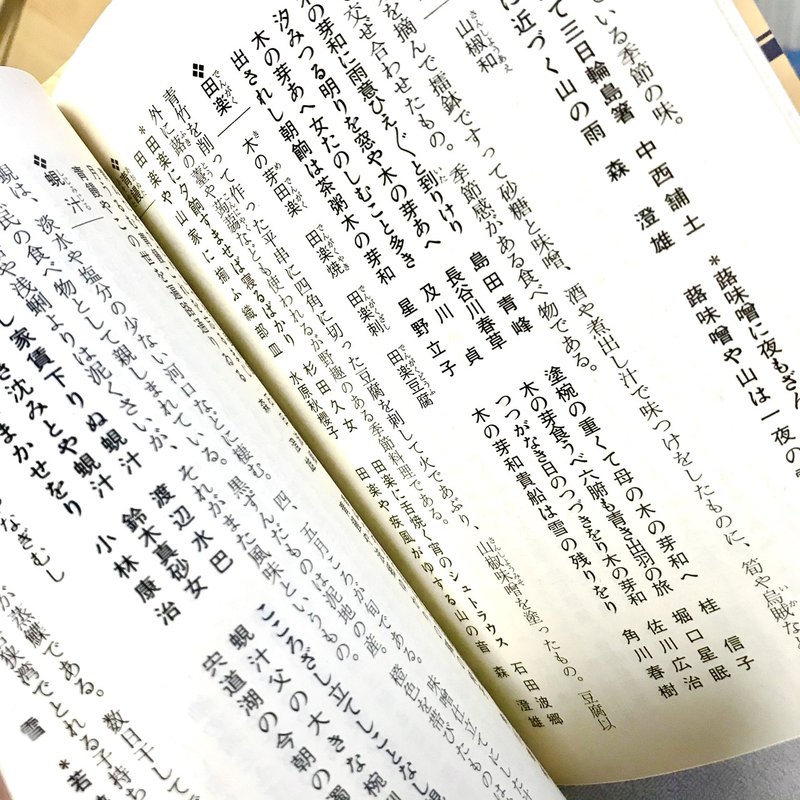 ている季節の味。
て三日輪島箸 中西舗土
に近づく山の雨 森 澄雄
*蕗味噌に夜もざん
蕗味噌や山は一夜の
山椒和
を摘んで擂鉢ですって砂糖と味噌、酒や煮出し汁で味つけをしたものに、筍や烏賊な
交ぜ合わせたもの。季節感がある食べ物である。
木の芽和に雨意ひえ〲と到りけり 島田青峰
汐みつる明りを窓や木の芽あへ 長谷川春草
木の芽あへ女たのしむこと多き 及川 貞
出されし朝餉は茶粥木の芽和 星野立子
塗椀の重くて母の木の芽和へ 桂 信子
木の芽食うべ六腑も青き出羽の旅 堀口星眠
つつがなき日のつづきをり木の芽和 佐川広治
木の芽和貴船は雪の残りをり 角川春樹
❖田楽 木の芽田楽 田楽焼 田楽刺 田楽豆腐
青竹を削って作った平串に四角に切った豆腐を刺して火であぶり、山椒味噌を塗ったもの。豆腐以
外に蕗の薹や蒟蒻なども使われるが野趣のある季節料理である。
*田楽に夕餉すませば寝るばかり 杉田久女
田楽や山家に揃ふ織部皿 水原秋櫻子
田楽に舌焼く宵のシュトラウス 石田波郷
田楽や疾風がゆする山の音 森 澄雄
❖蜆汁
蜆は、淡水や塩分の少ない河口などに棲む。黒ずんだものは泥地の産。橙色を帯びたものは
民の食べ物として親しまれている。四、五月ころが旬である。味噌仕立てにした
や浅蜊よりは泥くさいが、それがまた風味というもの。
家賃下りぬ蜆汁 渡辺水巴
き沈みとや蜆汁 鈴木真砂女
まかせをり 小林康治
こころざし立てしことなし
蜆汁父の大きな椀
宍道湖の今朝の濁
なぎむし
が蒸鰈である。数日干して
狭湾でとれる子持ち
雪
*若